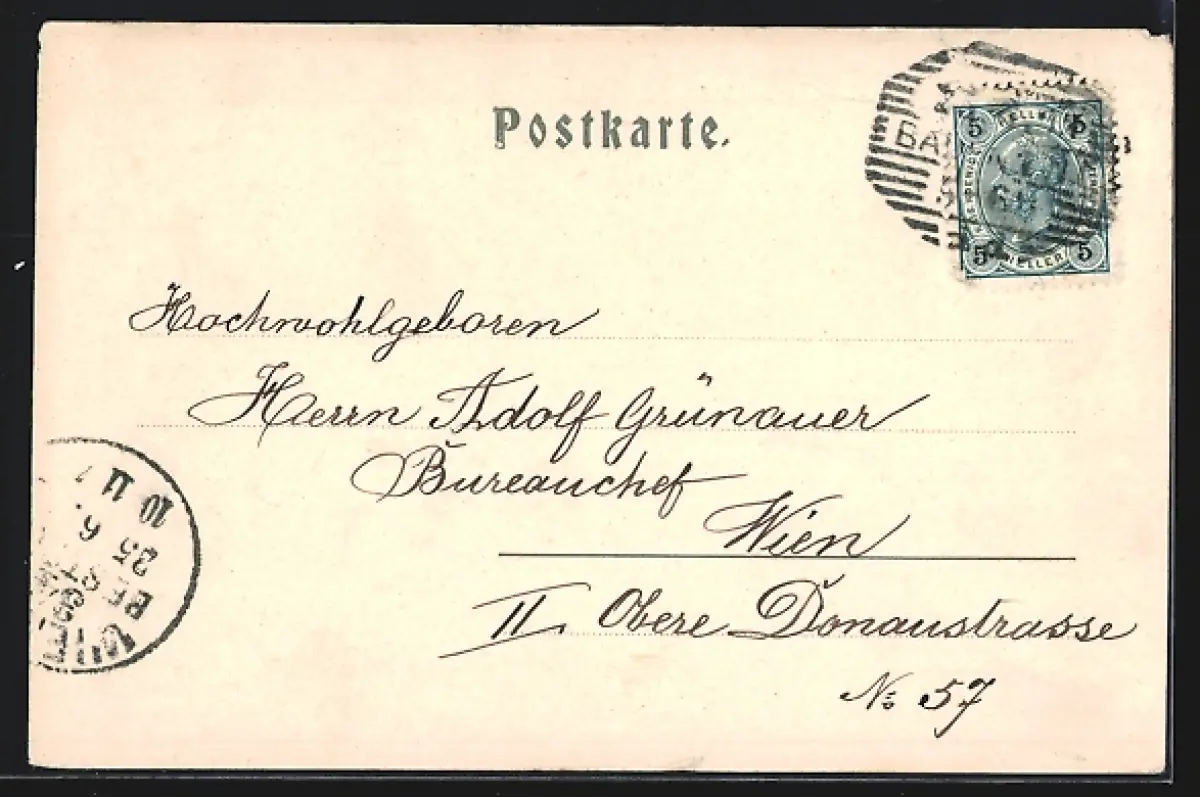 Postkarte.
5 5
5 HELLER 5
Hochwohlgeboren
Herrn Adolf Grünauer
Bureauchef
Wien
II. Obere Donaustrasse
No 57
10 11
25 6.
BEST